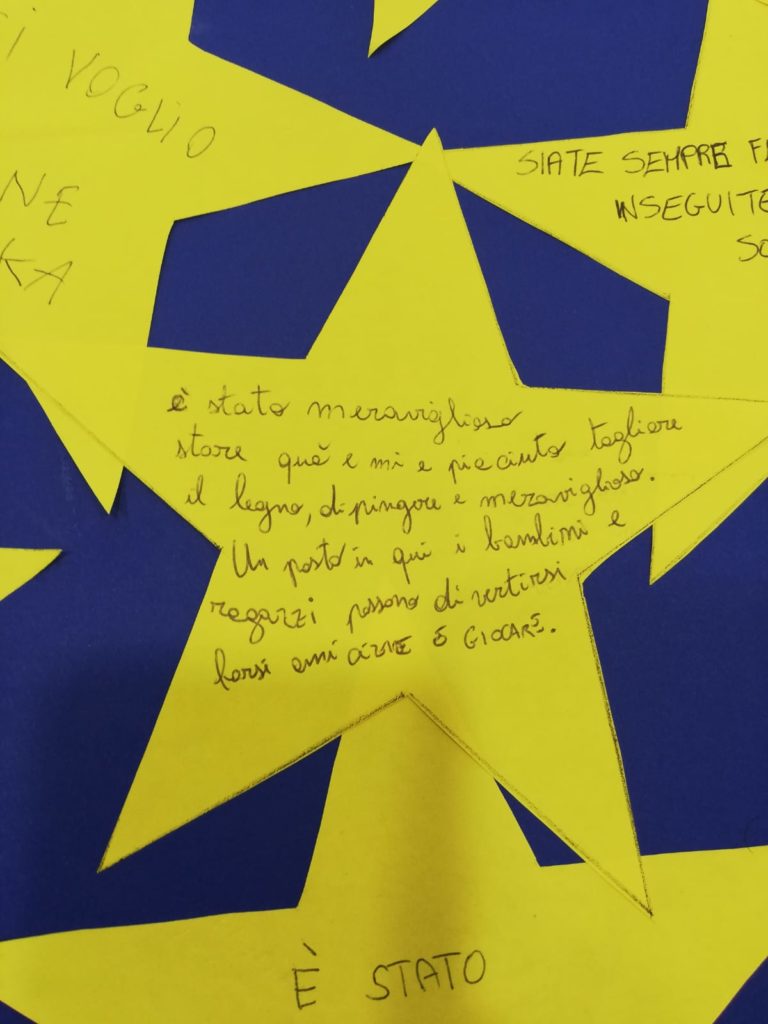 Ti VOGLiO
NE
KA
SIATE SEMPRE F
INSEGUITE
SO
è stato meraviglioso
stare quà e mi e piaciuto tagliare
il legno, dipingere e meraviglioso.
Un posto in qui i bambini e
ragazzi possono divertirsi
farsi amicizie e GIOCARE.
È STATO